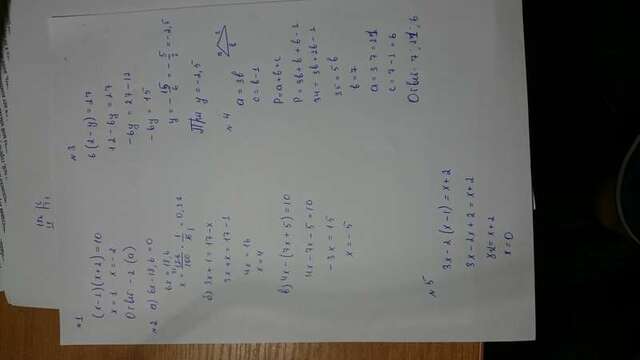 №1
(x-1)(x+2)=10
x=1 x=-2
Ответ -2 (а)
№2 а) 6x-15,6=0
б) 3x+1=17-x
3x+x=17-1
4x=16
x=4
в) 4x-(7x+5)=10
4x-7x-5=10
-3x=15
x=-5
№3
6(2-y)=27
12-6y=27
-6y=27-12
-6y=15
y=-15/6=-5/2=-2,5
При y=-2,5
№4
a=3b
c=b-1
P=a+b+c
P=3b+b+b-1
34=3b+2b-1
35=5b
b=7
a=3·7=21
c=7-1=6
Ответ: 7; 21; 6
№5
3x-2(x-1)=x+2
3x-2x+2=x+2
x=0